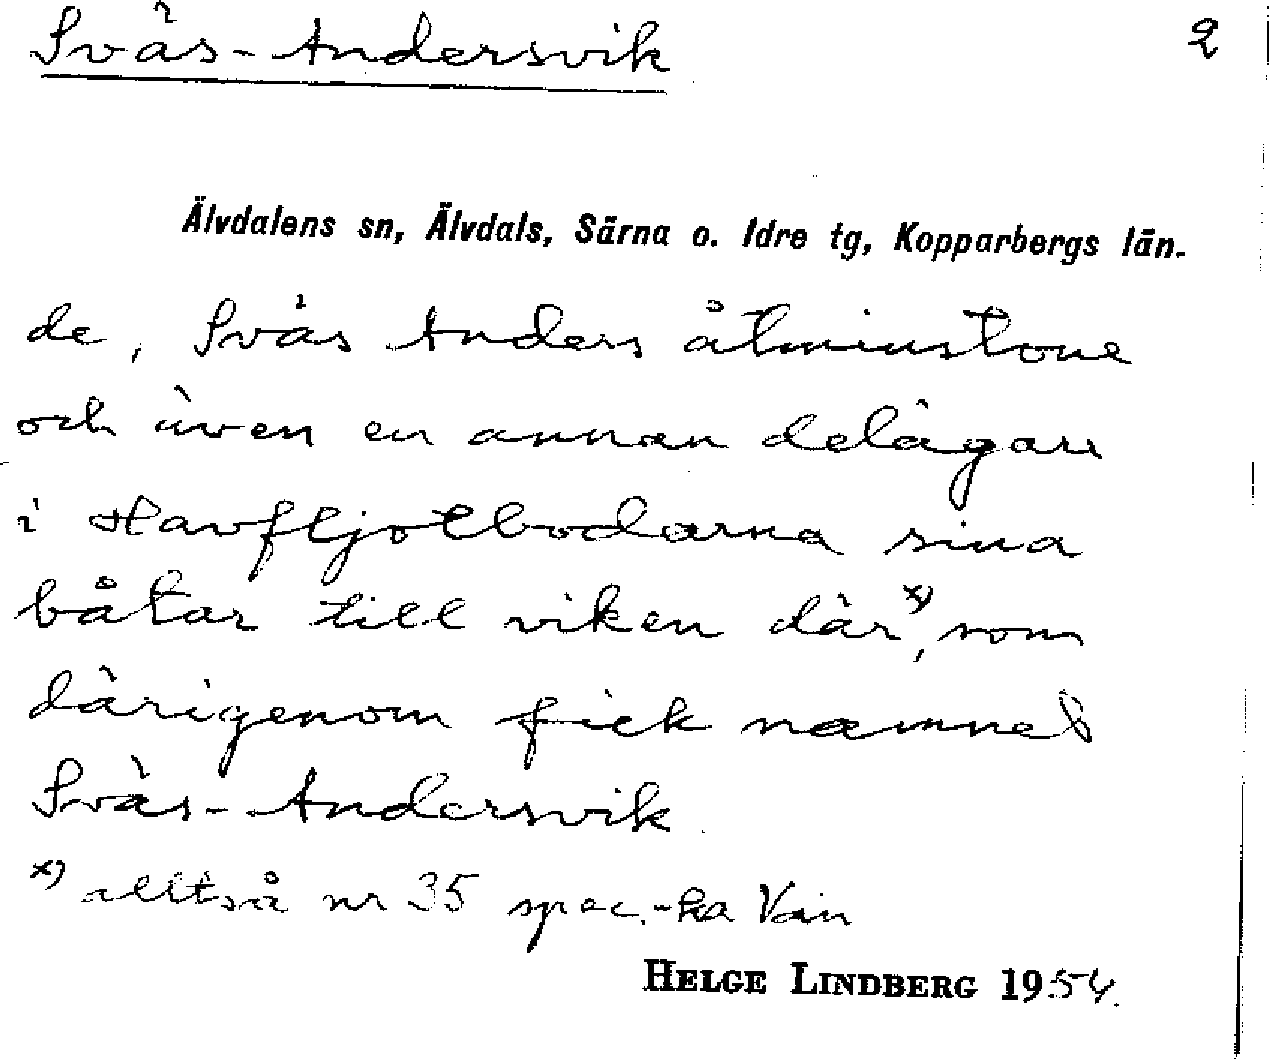 Sväs-Andersvik 2
Älvdalens sn, Älvdals, Särna o. Idre tg, Kopparbergs län.
de, Sväs Anders åtminstone
och även en annan delägare
i Havfljotbodarna sina
båtar till viken där x), som
därigenom fick namnet
Sväs-Andersvik
x) alltså nr 35 spec.-ka Van
HELGE LINDBERG 1954.